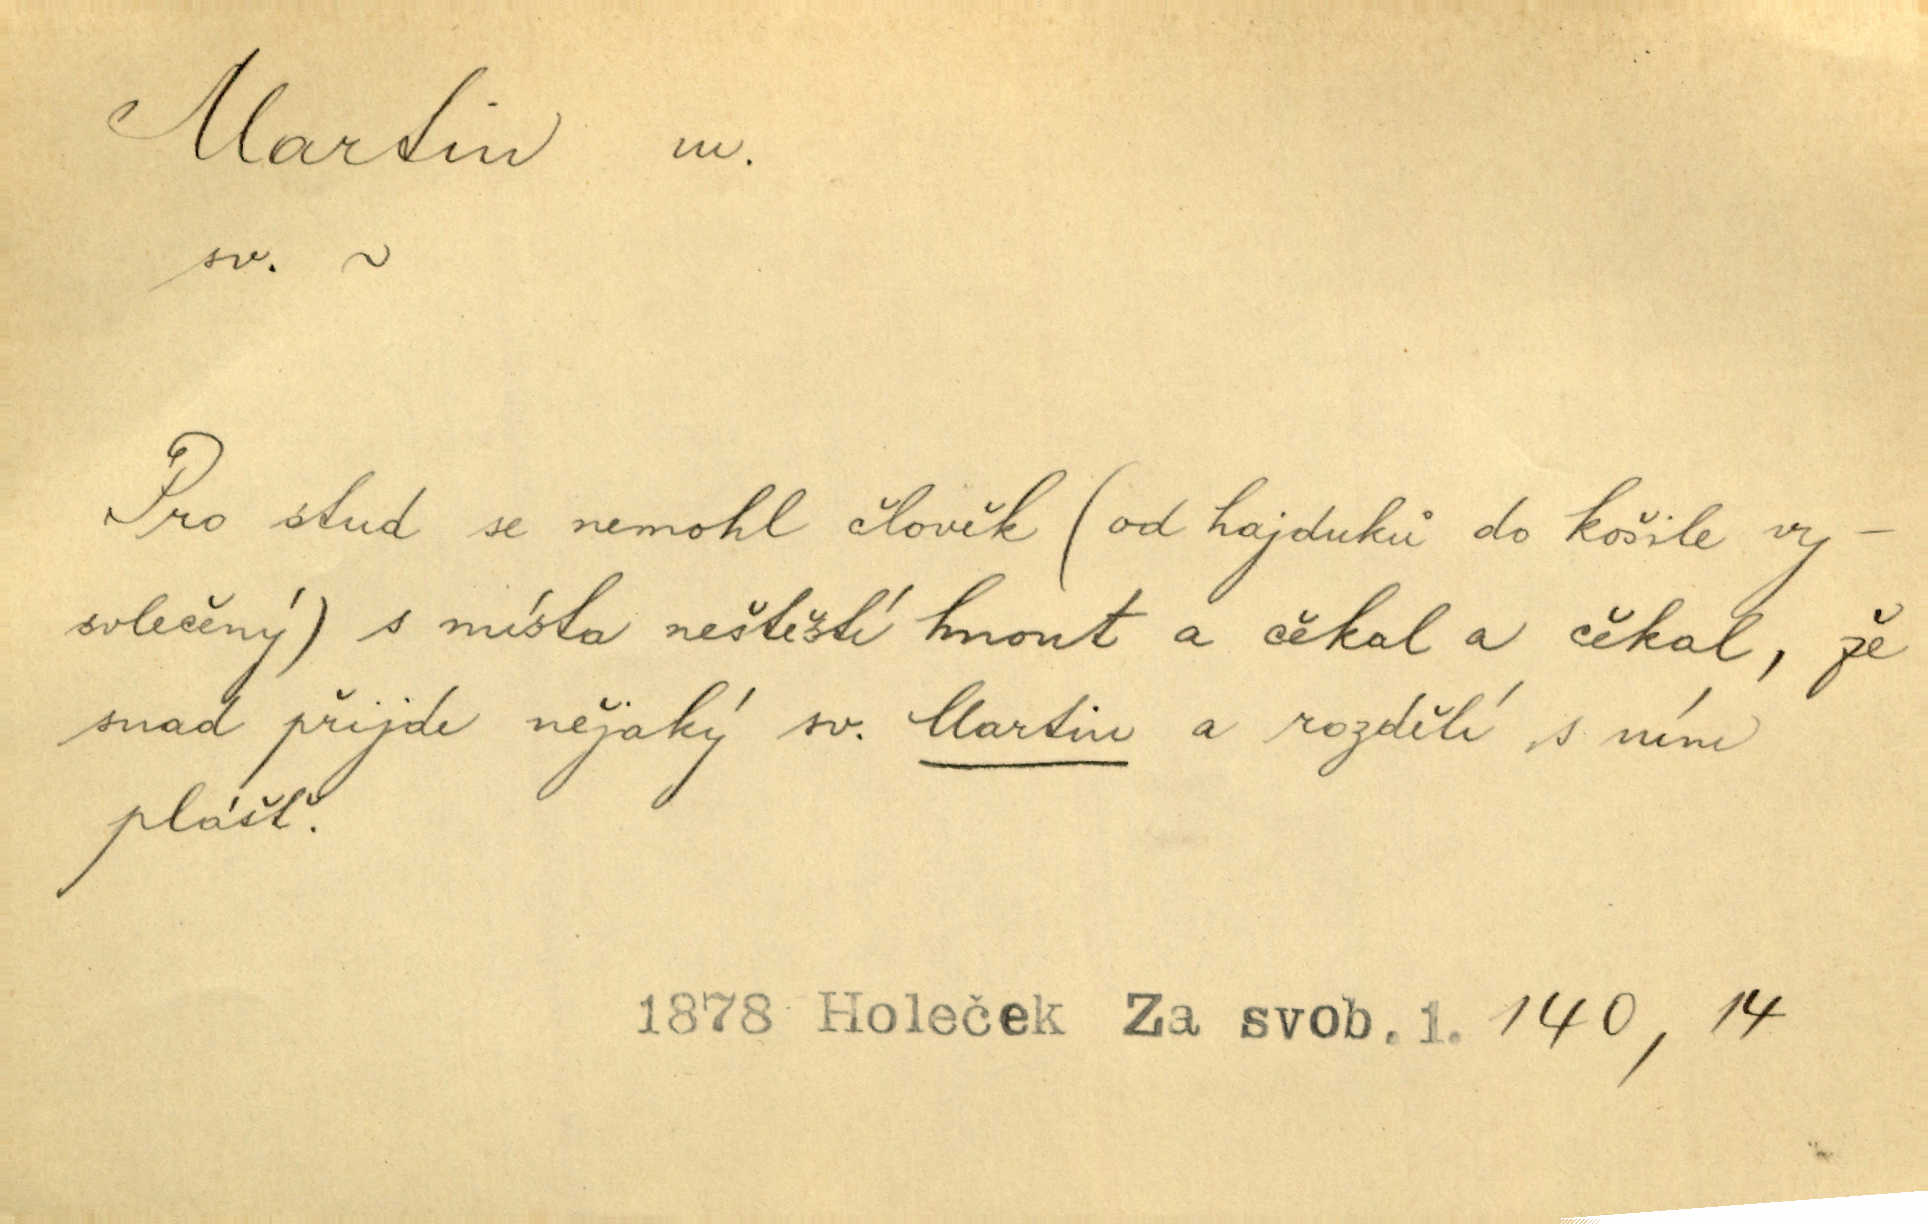 Martin m.
sv. ~
Pro stud se nemohl člověk (od hajduků do košile vy-
svlečený) s místa neštěstí hnout a čekal a čekal, že
snad přijde nějaký sv. Martin a rozdělí s ním
plášť.
1878 Holeček Za svob. 1. 140, 14